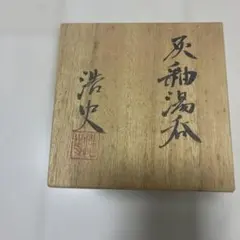 灰釉湯呑
浩史